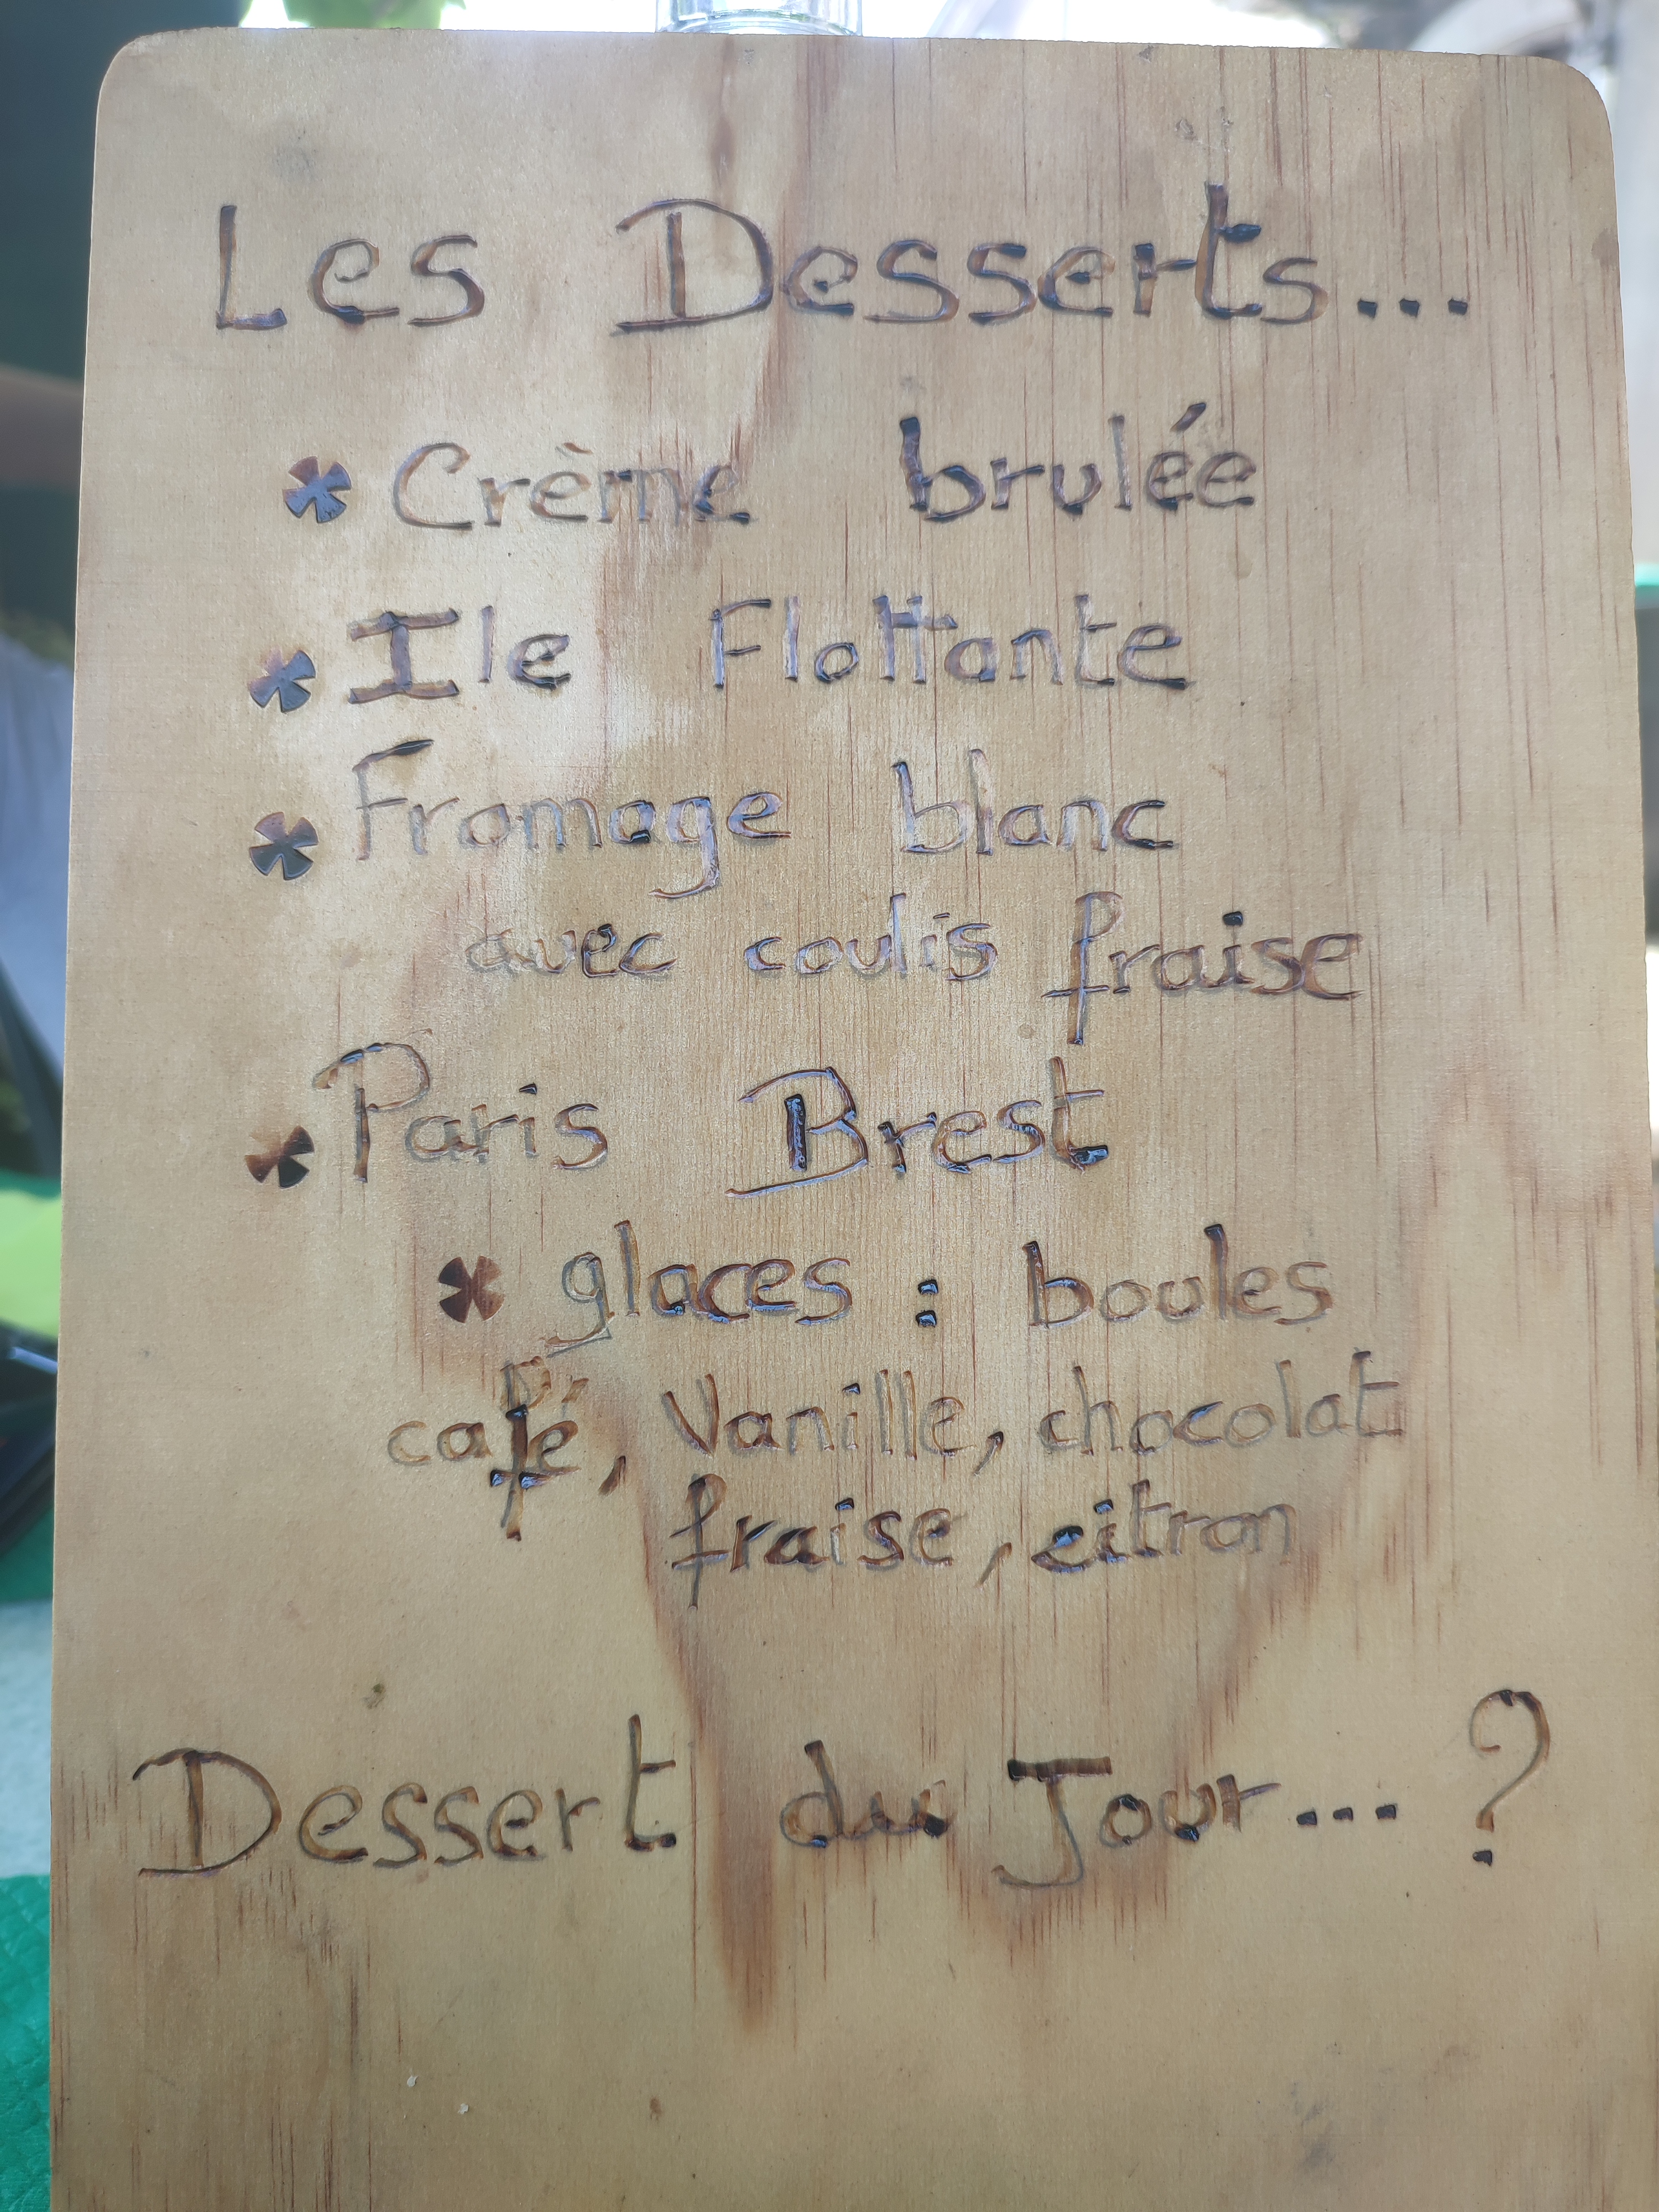 Les Desserts...
* Crème brulée
* Ile Flottante
* Fromage blanc
avec coulis fraise
* Paris Brest
* glaces : boules
café, Vanille, chocolat
fraise, citron
Dessert du Jour... ?